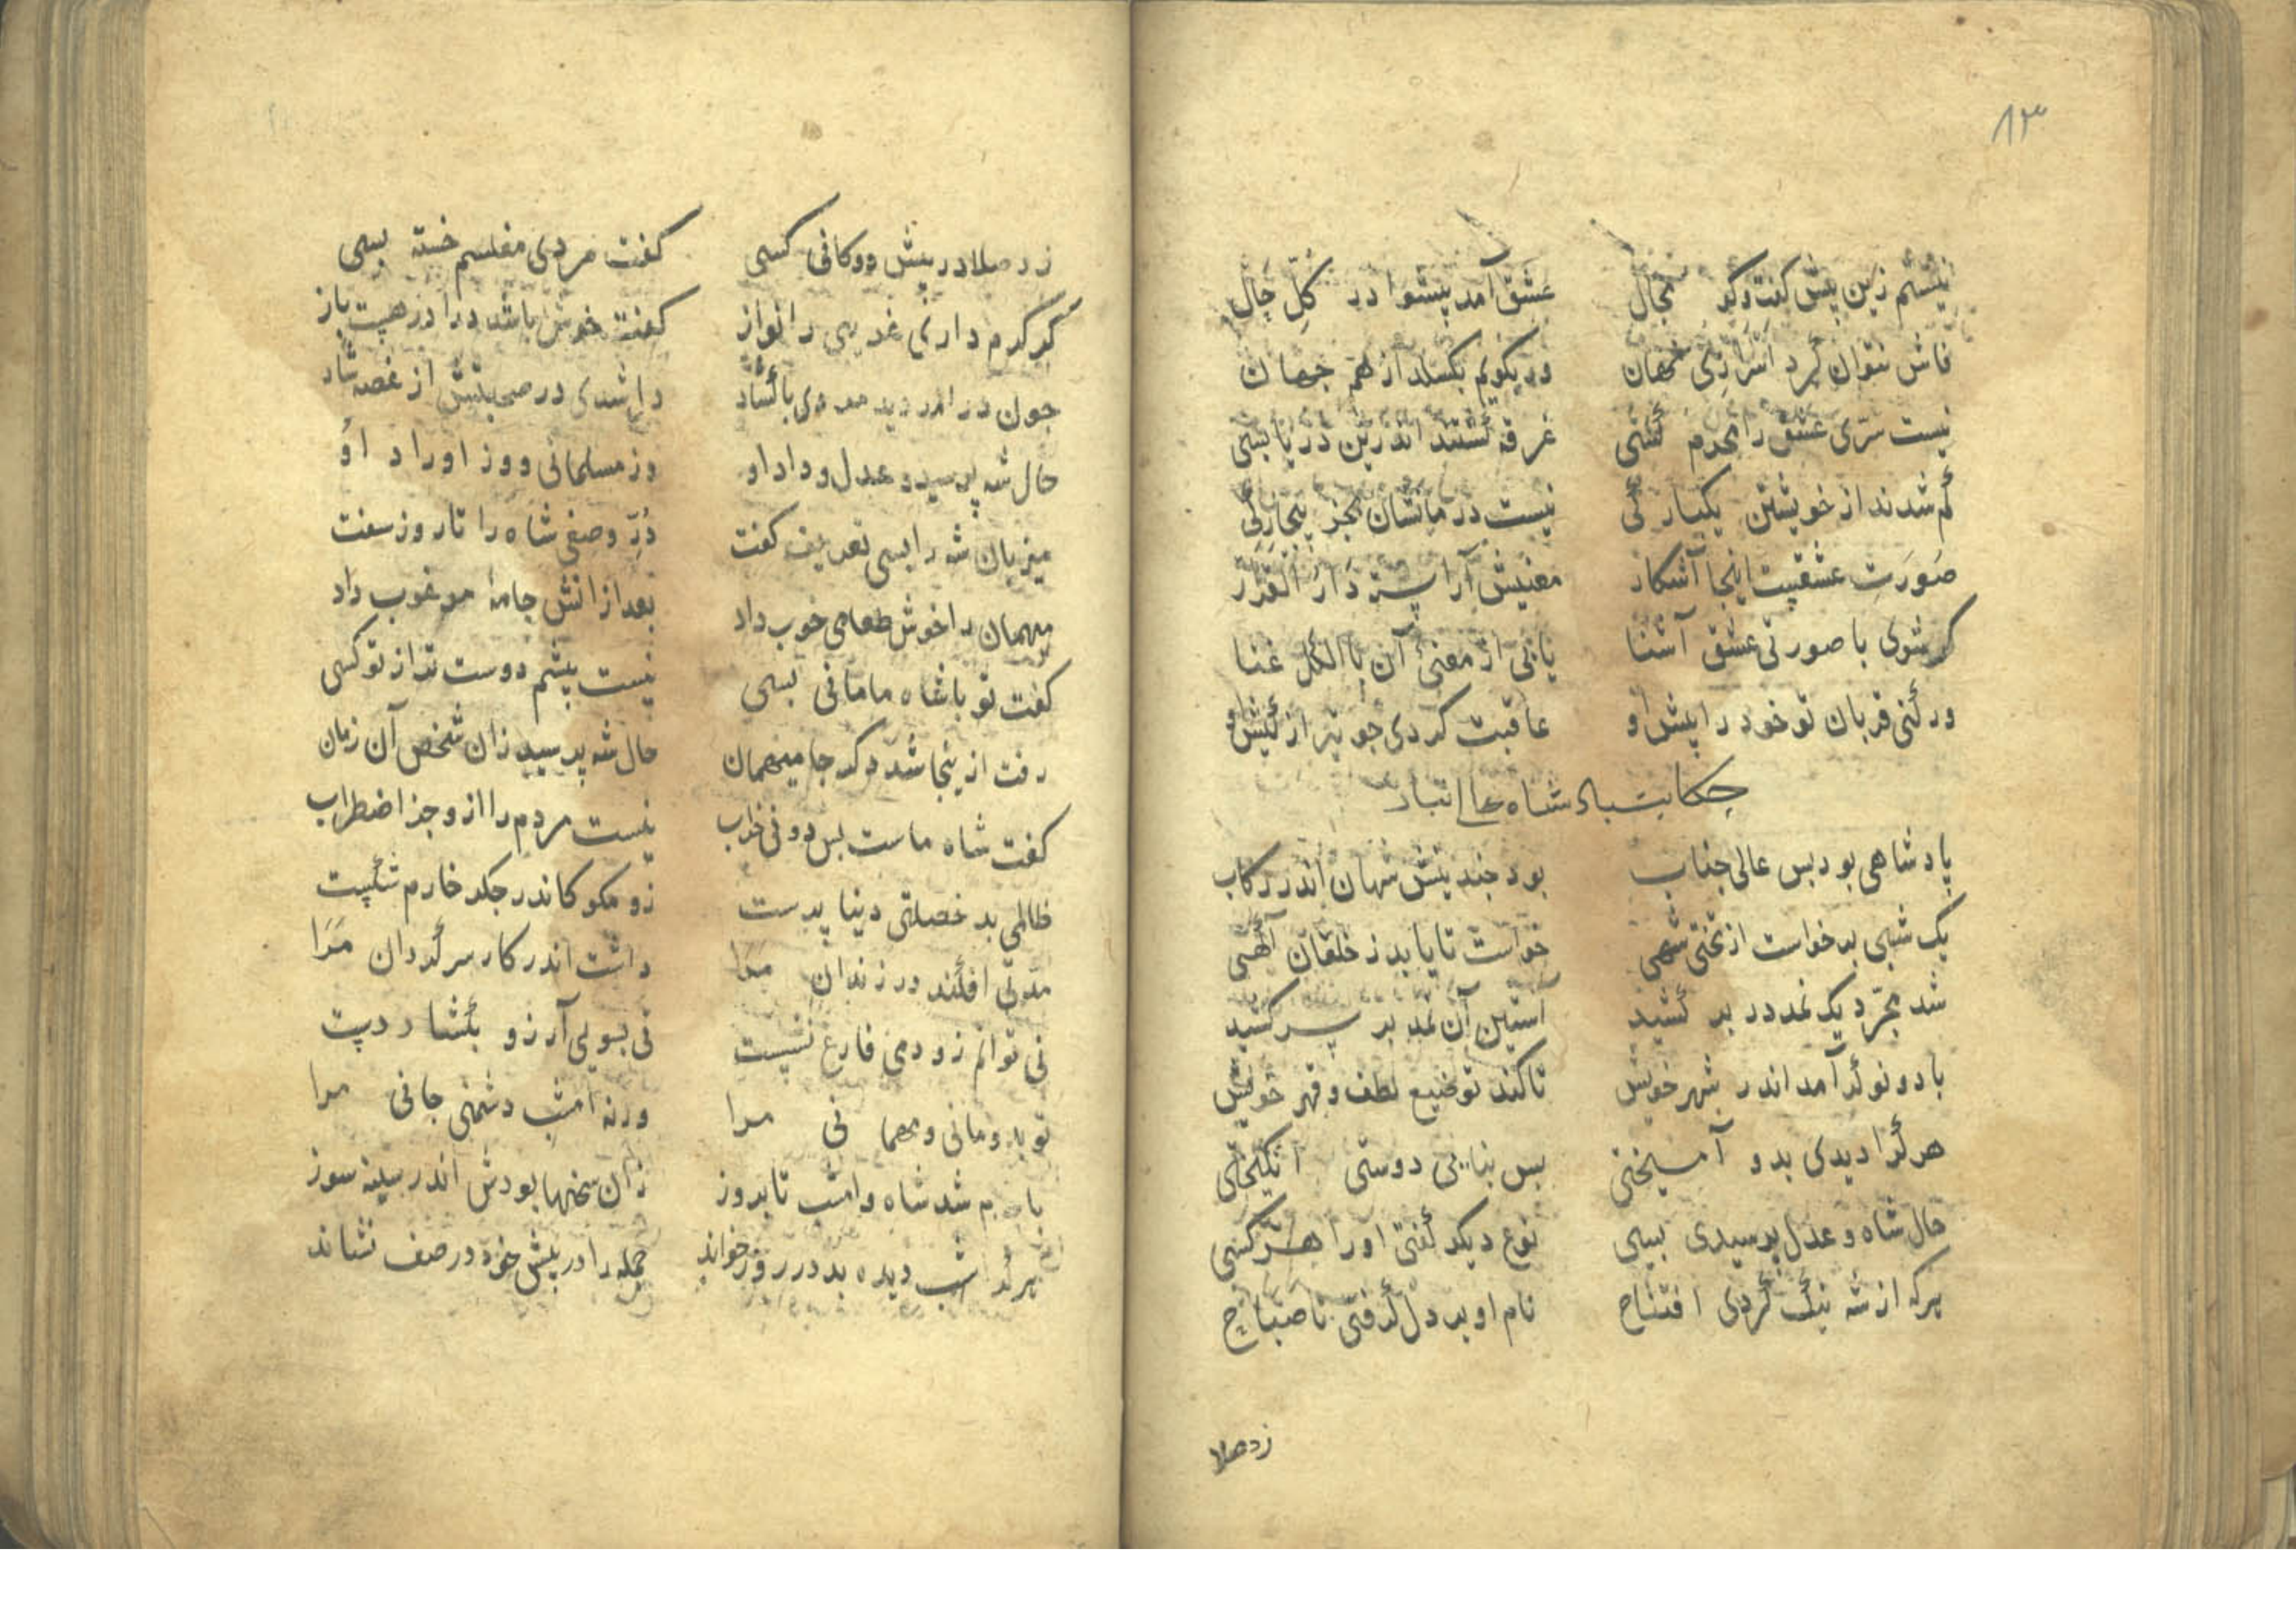 ۸۳
نیستم زین پیش گفت و گو مجال عشق آمد پیشوا در کلّ حال
فاش نتوان کرد اسراری نهان ور بگویم بگسلد از هم جهان
نیست سرّی عشق را محرم کسی غرقه گشتند اندرین دریا بسی
گم شدند از خویشتن یکبارگی نیست درمانشان بجز بیچارگی
صورت عشقیست اینجا آشکار معنیش آراسته دار القرار
گر شوی با صورتی عشق آشنا یابی از معنیٔ آن با الکل غنا
ور کنی قربان تو خود را پیش او عاقبت گردی چو تیر از کیش او
حکایت پادشاه
پادشاهی بود بس عالی جناب بود چندینش شهان اندر رکاب
یک شبی برخواست از تختی شهی خواست تا یابد ز خلقان آگهی
شد مجرّد یک نمد در بر کشید آستین آن نمد بر سر کشید
با دو نوکر آمد اندر شهر خویش تا کند توضیع لطف و قهر خویش
هر کرا دیدی بدو آمیختی بس بنایی دوستی انگیختی
حال شاه و عدل پرسیدی بسی نوع دیگر گفتی او را هر کسی
هرکه از شه نیک کردی افتتاح نام او بر دل گرفتی تا صباح
زد صلا
زد صلا در پیش دوکانی کسی گفت مردی مفلسم خسته بسی
گر کرم داری غریبی را نواز گفت خوش باشد درا در هیت باز
چون در آمد دید مردی با گشاد دل شدی در صحبتش از غصه شاد
حال شه پرسید و عدل و داد او وز مسلمانی و وز اوراد او
میزبان شه را بسی تعریف گفت دُرِّ وصفی شاه را تا روز سفت
میهمان را خوش طعامی خوب داد بعد از انش جامهٔ مرغوب داد
گفت تو با شاه ما مانی بسی نیست پیشم دوست تر از تو کسی
رفت از ینجا شد دگر جا میهمان حال شه پرسید زان شخص آن زمان
گفت شاه ماست بس دونی خراب نیست مردم را از و جز اضطراب
ظالمی بد خصلتی دنیا پرست زو مگو کاندر جگر خارم شکست
مدّتی افکند در زندان مرا داشت اندر کار سرگردان مرا
نی توانم زو دمی فارغ نشست نی بسویی آرزو بگشاد دست
تو بدو مانی و مهمانی مرا ورنه امشب دشمنی جانی مرا
شد شاه و امشب تا بروز زان سخنها بودش اندر سینه سوز
هر که شب دیده بد در روز خواند جمله را در پیش خود در صف نشاند